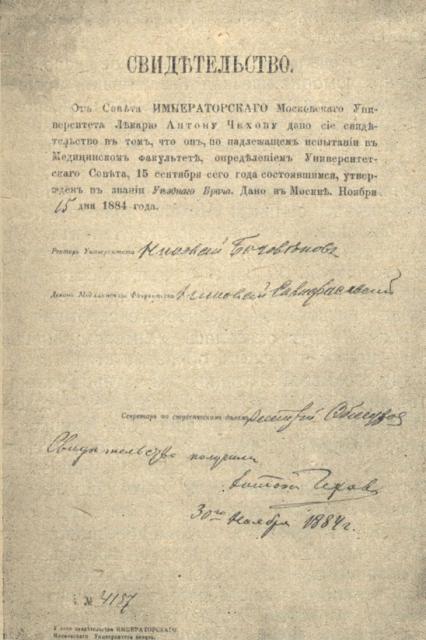 СВИДѢТЕЛЬСТВО.
Отъ Совѣта ИМПЕРАТОРСКАГО Московскаго Уни-
верситета Лѣкарю Антону Чехову дано сіе свидѣ-
тельство въ томъ, что онъ, по надлежащемъ испытаніи въ
Медицинскомъ факультетѣ, опредѣленіемъ Университет-
скаго Совѣта, 15 сентября сего года состоявшимся, утвер-
жденъ въ званіи Уѣзднаго Врача. Дано въ Москвѣ. Ноября
15 дня 1884 года.
Ректоръ Университета Николай Боголѣповъ
Деканъ Медицинскаго Факультета Николай
Секретарь по студенческимъ дѣламъ
Свидѣтельство получилъ
Антонъ Чеховъ
30го Ноября 1884 г.
№ 4157
ИМПЕРАТОРСКАГО
Московскаго Университета